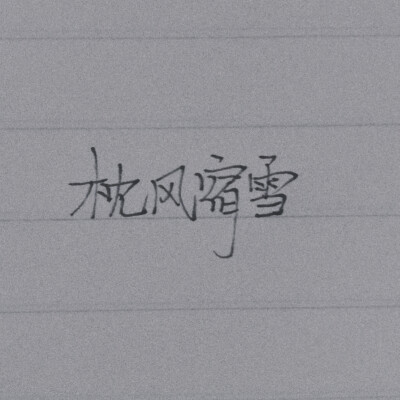 枕风宿雪